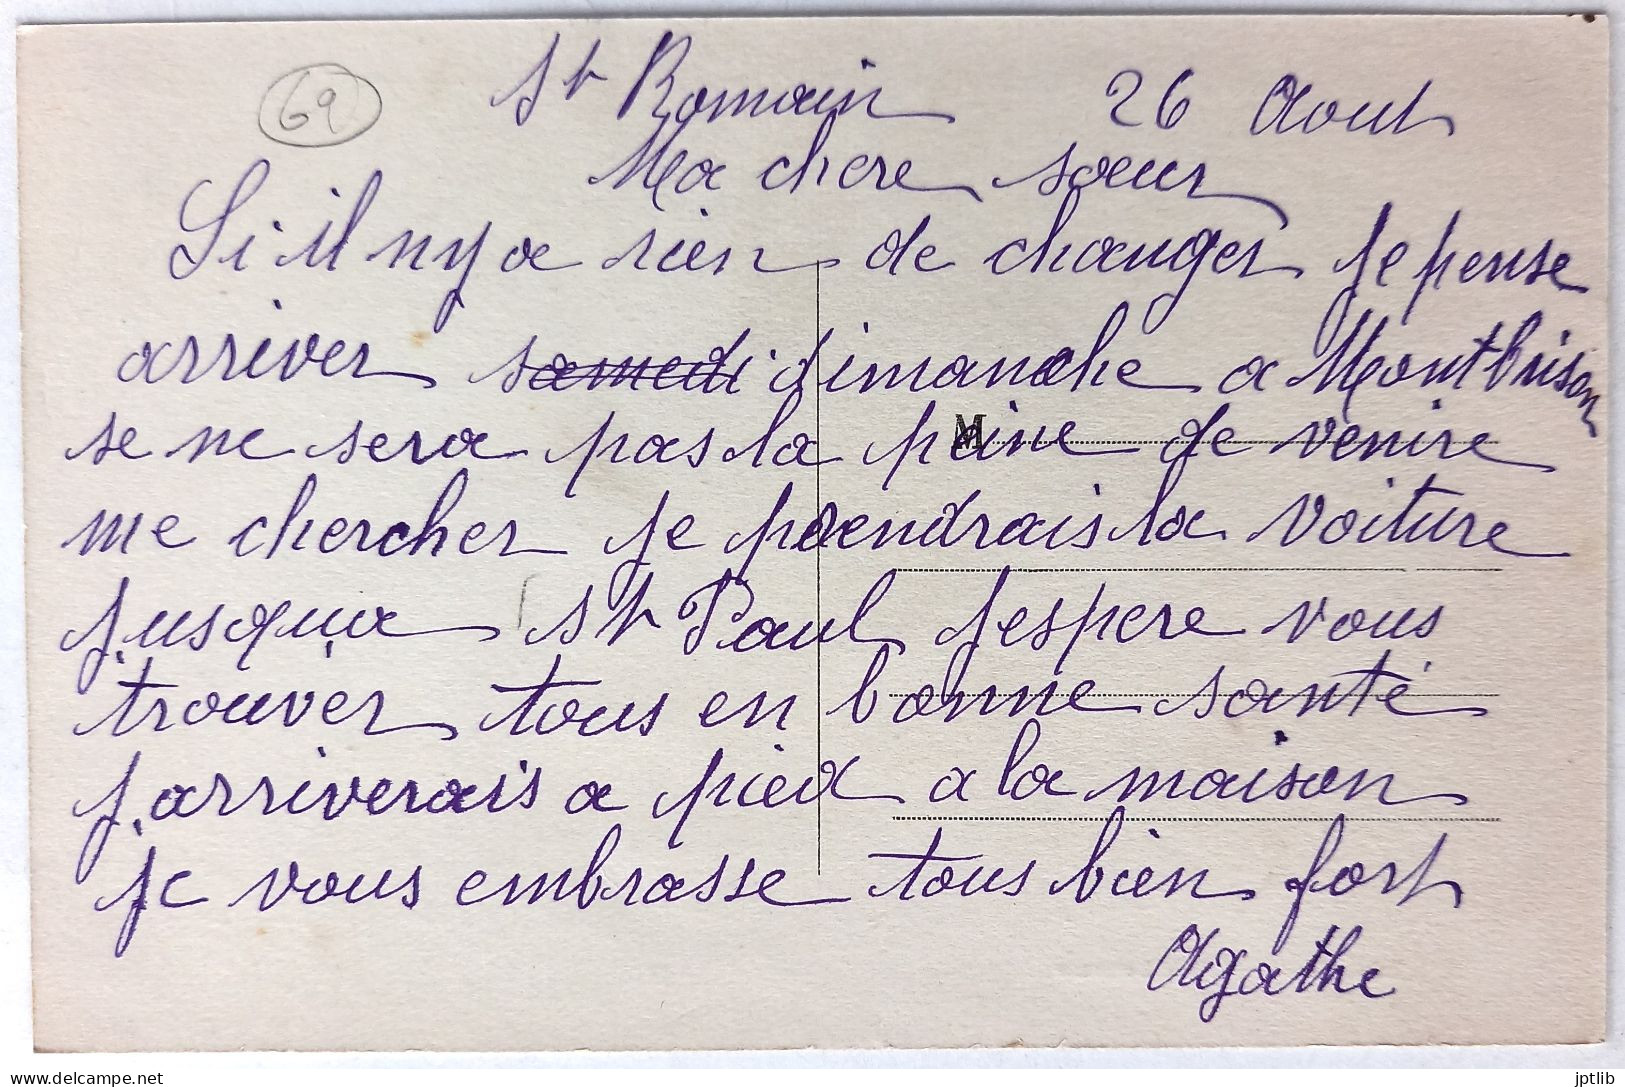 69
St Romain 26 Aout
Ma chere sœur
Si il ny a rien de changer je pense
arriver samedi dimanche a Montbrison
se ne sera pas la peine de venire
M
me chercher je prendrais la voiture
jusqua St Paul j'espere vous
trouver tous en bonne santé
j'arriverais a pied a la maison
je vous embrasse tous bien fort
Agathe
delcampe.net
jptlib